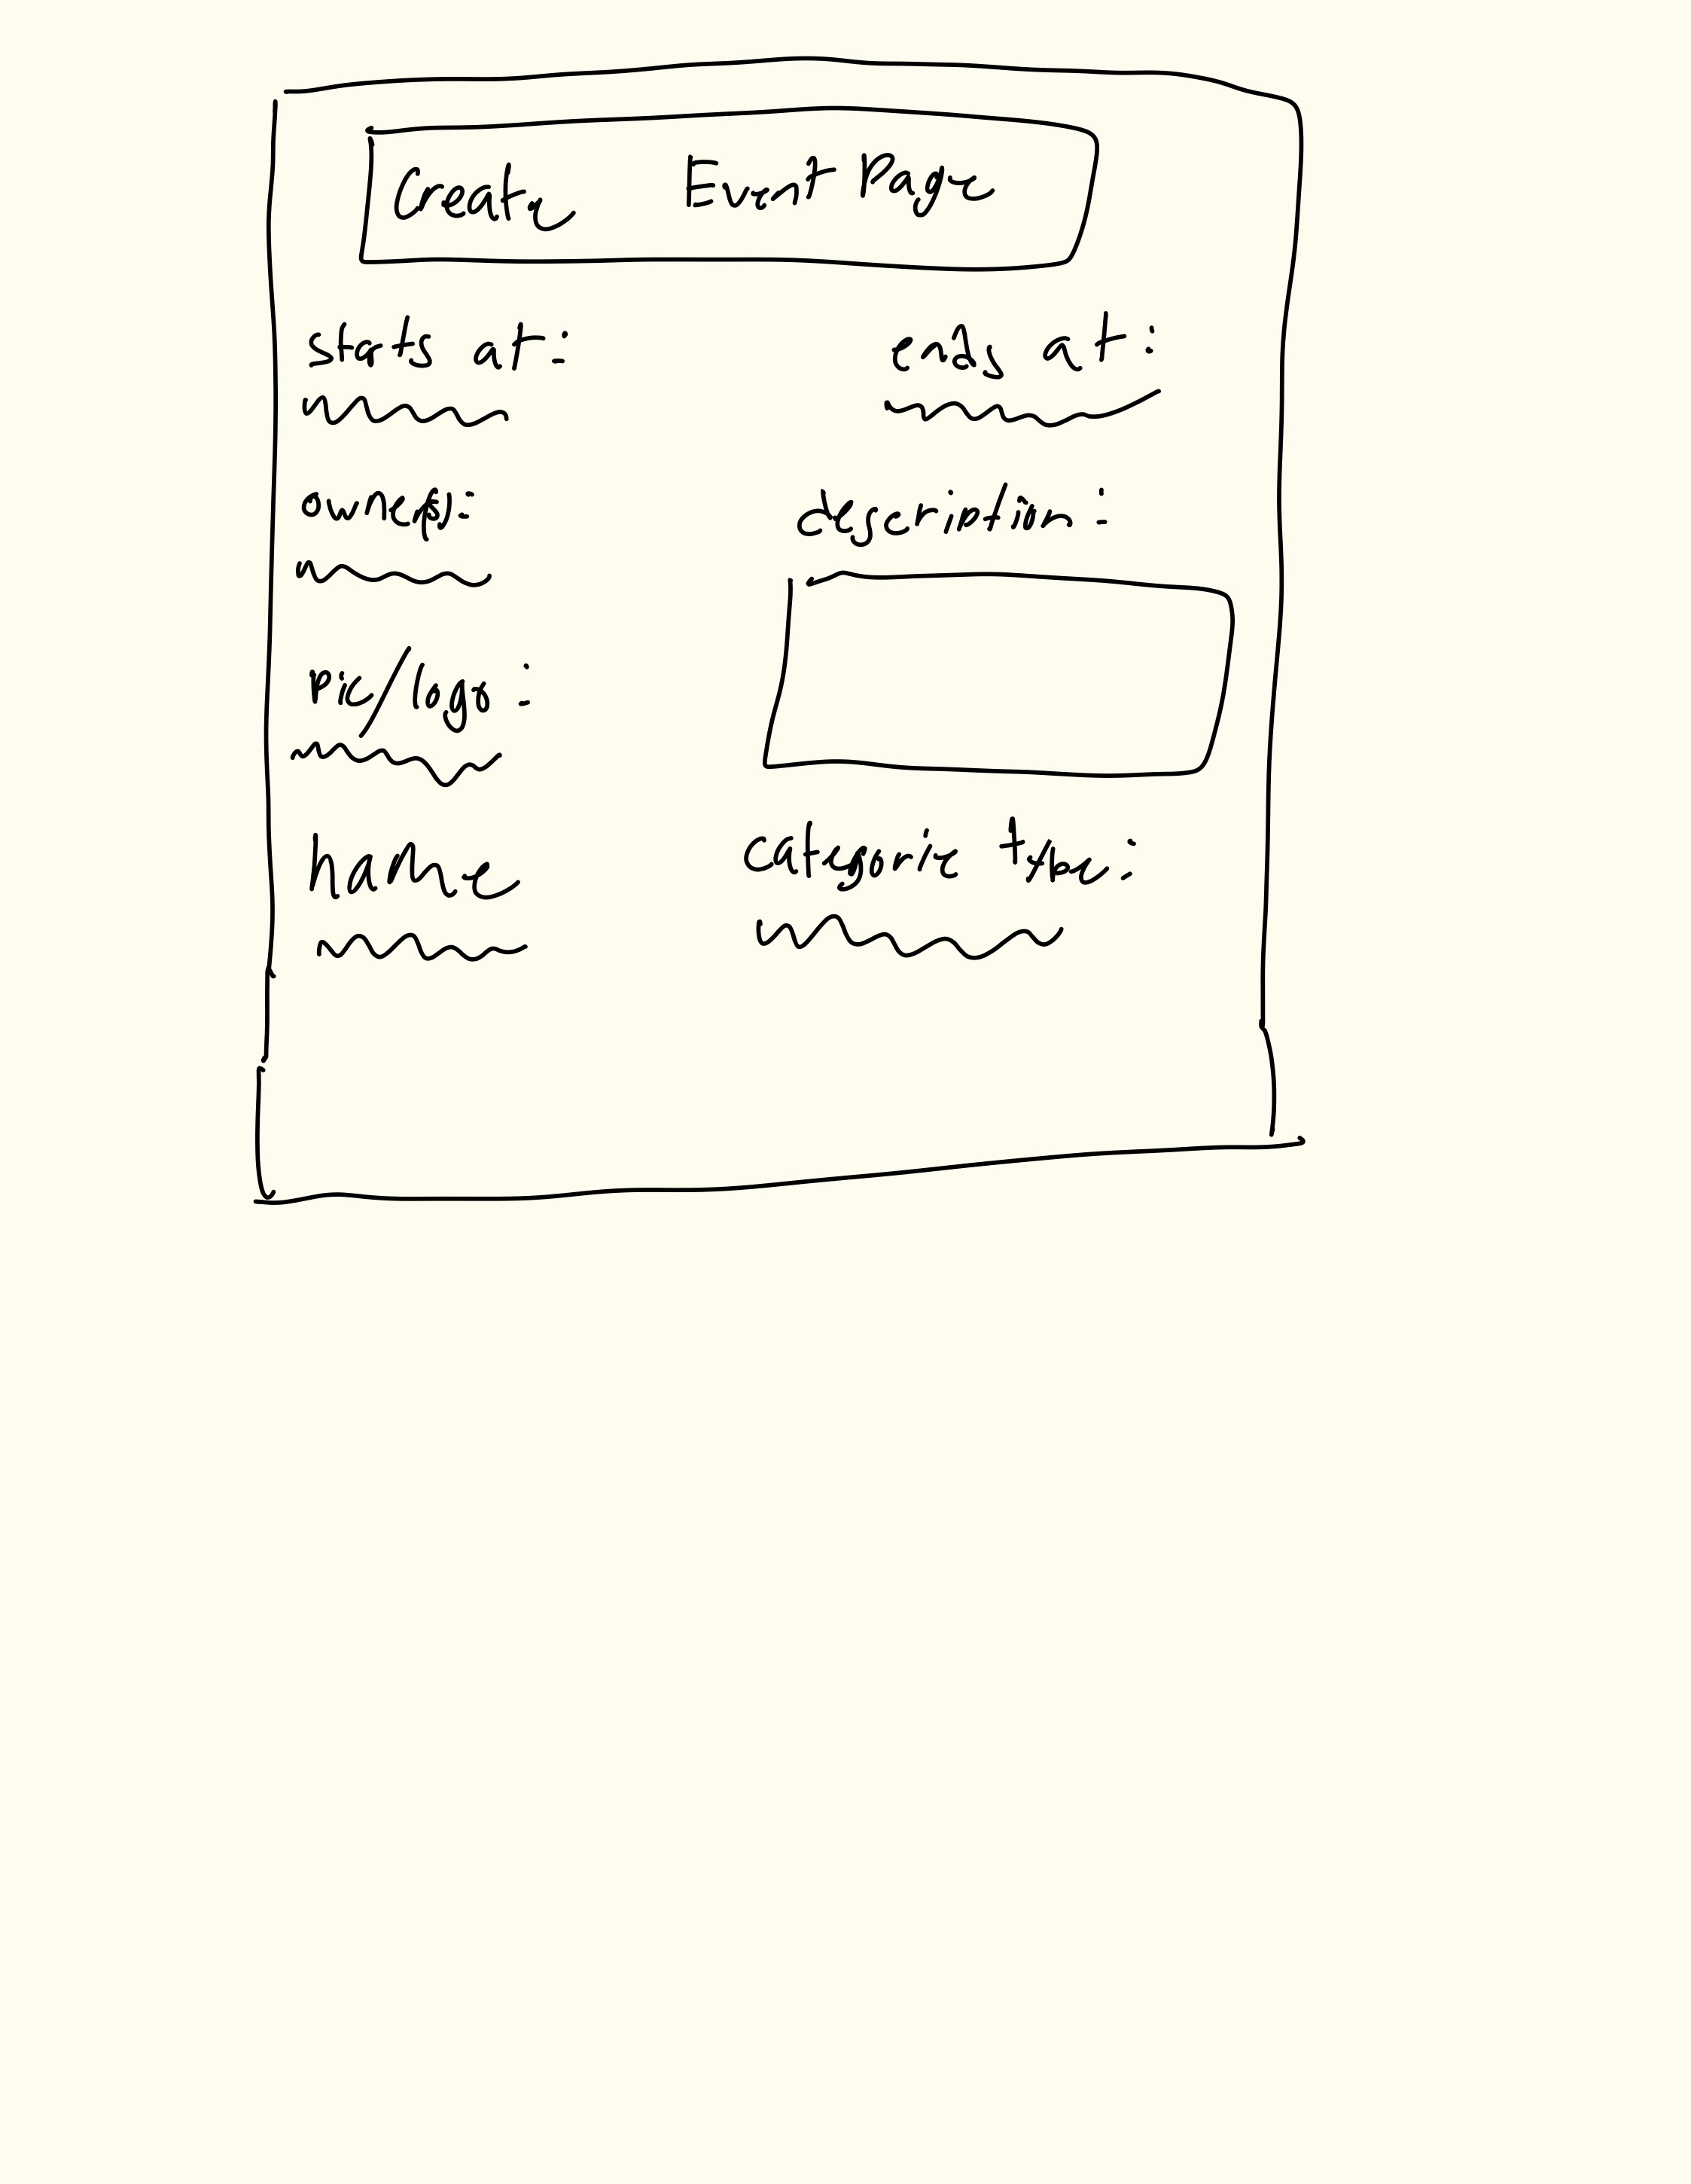 Create Event Page
starts at: ends at:
owner(s): description:
pic/logo:
name categorie type: